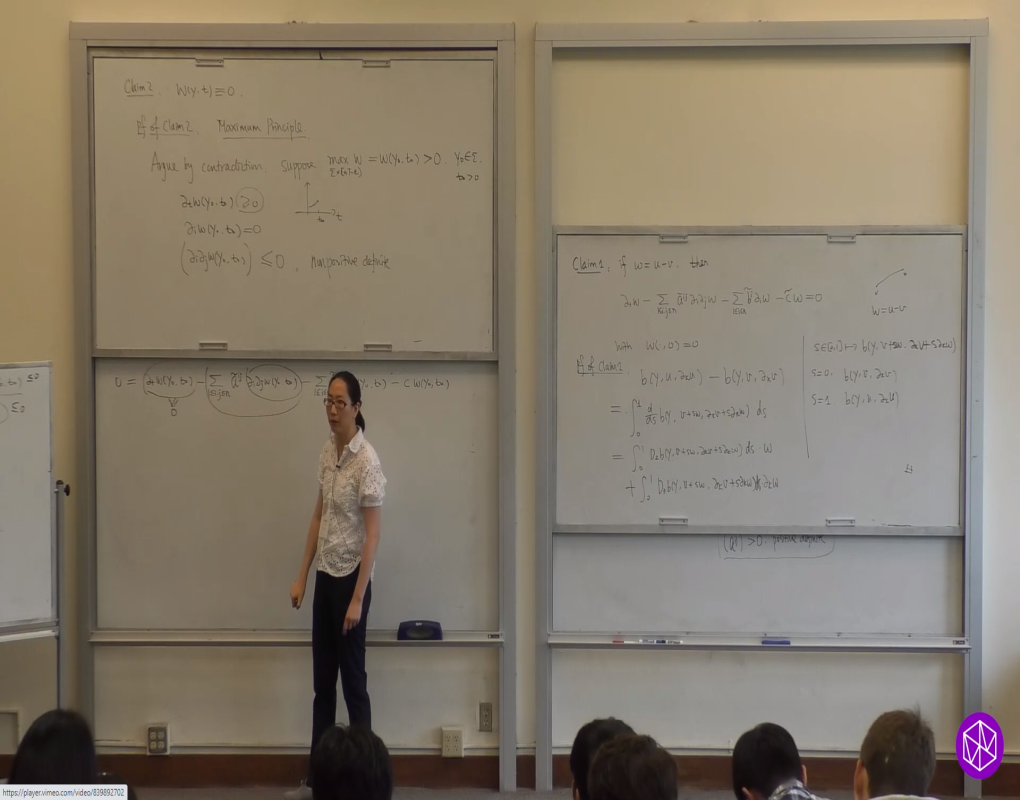 Claim 2. W(y,t) ≡ 0.
Pf of Claim 2. Maximum Principle.
Argue by contradiction. suppose max W = W(y₀,t₀) > 0. y₀∈Σ.
t₀>0
∂ₜW(y₀,t₀) ≥ 0
∂ᵢW(y₀,t₀) = 0
(∂ᵢ∂ⱼW(y₀,t₀)) ≤ 0, nonpositive definite
t₀
t
≤0
≤0
0 = ∂ₜW(y₀,t₀) -
0
Claim 1, if w = u-v. then
∂ₜw - Σ ãⁱʲ ∂ᵢ∂ⱼw - Σ b̃ⁱ ∂ᵢw - c̃ w = 0
w = u-v
with W(·,0) = 0
Pf of Claim 1: b(y, u, ∂ₓu) - b(y, v, ∂ₓv)
= ∫₀¹ d/ds b(y, v+sw, ∂ₓv+s∂ₓw) ds
= ∫₀¹ b(y, v+sw, ∂ₓv+s∂ₓw) ds · w
+ ∫₀¹ b(y, v+sw, ∂ₓv+s∂ₓw)
s∈[0,1] ↦ b(y, v+sw, ∂ₓv+s∂ₓw)
s=0. b(y, v, ∂ₓv)
s=1 b(y, u, ∂ₓu)
>0. positive definite
https://player.vimeo.com/video/839892702